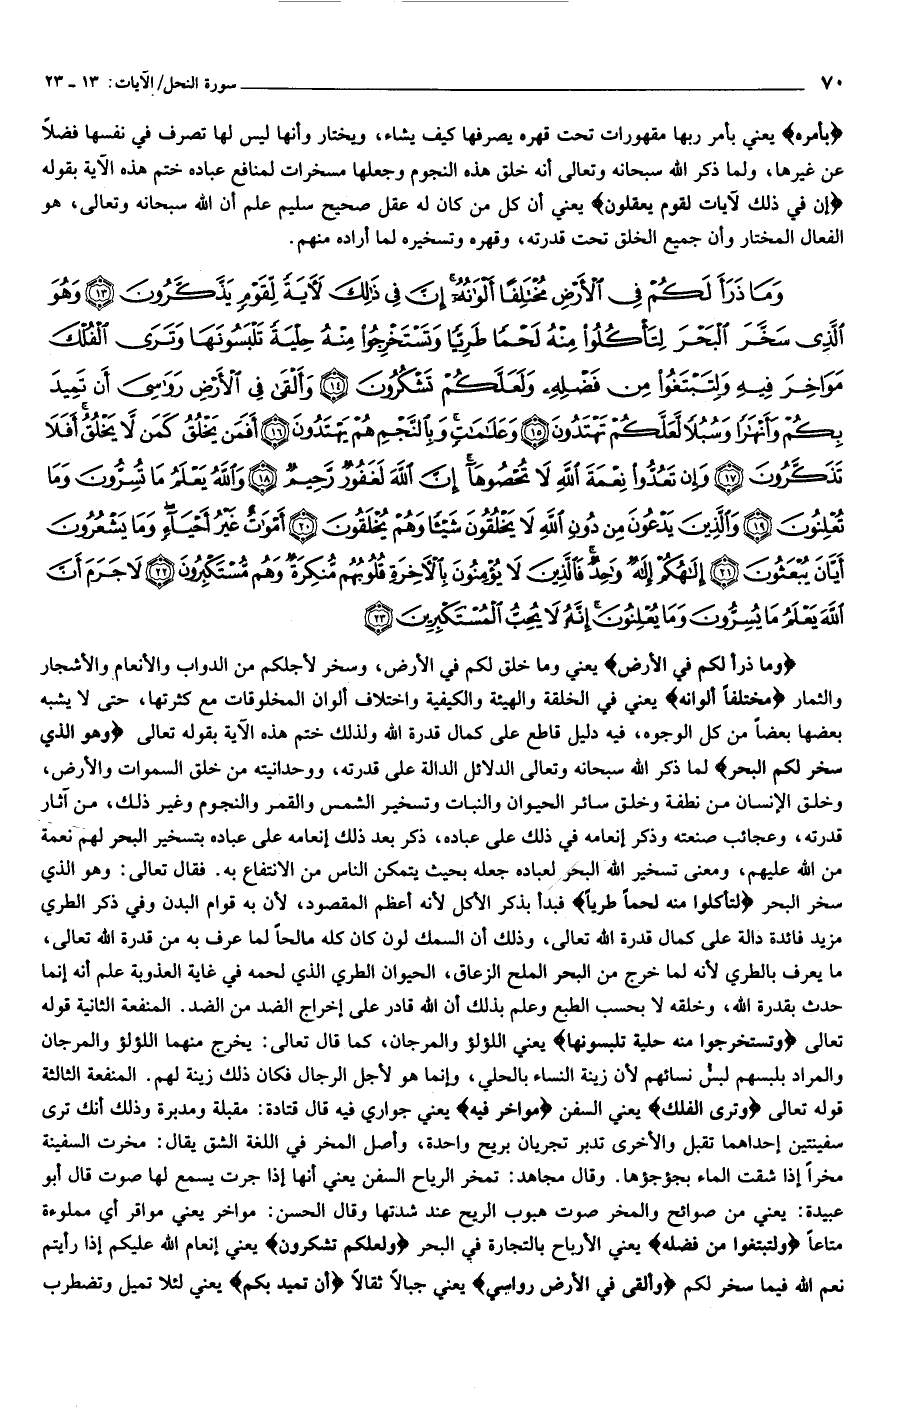 ٧٠ سورة النحل/ الآيات: ١٣ ـ ٢٣
﴿بأمره﴾ يعني بأمر ربها مقهورات تحت قهره يصرفها كيف يشاء، ويختار وأنها ليس لها تصرف في نفسها فضلاً
عن غيرها، ولما ذكر الله سبحانه وتعالى أنه خلق هذه النجوم وجعلها مسخرات لمنافع عباده ختم هذه الآية بقوله
﴿إن في ذلك لآيات لقوم يعقلون﴾ يعني أن كل من كان له عقل صحيح سليم علم أن الله سبحانه وتعالى، هو
الفعال المختار وأن جميع الخلق تحت قدرته، وقهره وتسخيره لما أراده منهم.
وَمَا ذَرَأَ لَكُمْ فِى ٱلْأَرْضِ مُخْتَلِفًا أَلْوَٰنُهُۥٓ إِنَّ فِى ذَٰلِكَ لَآيَةً لِّقَوْمٍ يَذَّكَّرُونَ ﴿١٣﴾ وَهُوَ
ٱلَّذِى سَخَّرَ ٱلْبَحْرَ لِتَأْكُلُوا۟ مِنْهُ لَحْمًا طَرِيًّا وَتَسْتَخْرِجُوا۟ مِنْهُ حِلْيَةً تَلْبَسُونَهَا وَتَرَى ٱلْفُلْكَ
مَوَاخِرَ فِيهِ وَلِتَبْتَغُوا۟ مِن فَضْلِهِۦ وَلَعَلَّكُمْ تَشْكُرُونَ ﴿١٤﴾ وَأَلْقَىٰ فِى ٱلْأَرْضِ رَوَٰسِىَ أَن تَمِيدَ
بِكُمْ وَأَنْهَٰرًا وَسُبُلًا لَّعَلَّكُمْ تَهْتَدُونَ ﴿١٥﴾ وَعَلَٰمَٰتٍ وَبِٱلنَّجْمِ هُمْ يَهْتَدُونَ ﴿١٦﴾ أَفَمَن يَخْلُقُ كَمَن لَّا يَخْلُقُ أَفَلَا
تَذَكَّرُونَ ﴿١٧﴾ وَإِن تَعُدُّوا۟ نِعْمَةَ ٱللَّهِ لَا تُحْصُوهَآ إِنَّ ٱللَّهَ لَغَفُورٌ رَّحِيمٌ ﴿١٨﴾ وَٱللَّهُ يَعْلَمُ مَا تُسِرُّونَ وَمَا
تُعْلِنُونَ ﴿١٩﴾ وَٱلَّذِينَ يَدْعُونَ مِن دُونِ ٱللَّهِ لَا يَخْلُقُونَ شَيْـًٔا وَهُمْ يُخْلَقُونَ ﴿٢٠﴾ أَمْوَٰتٌ غَيْرُ أَحْيَآءٍ وَمَا يَشْعُرُونَ
أَيَّانَ يُبْعَثُونَ ﴿٢١﴾ إِلَٰهُكُمْ إِلَٰهٌ وَٰحِدٌ فَٱلَّذِينَ لَا يُؤْمِنُونَ بِٱلْآخِرَةِ قُلُوبُهُم مُّنكِرَةٌ وَهُم مُّسْتَكْبِرُونَ ﴿٢٢﴾ لَا جَرَمَ أَنَّ
ٱللَّهَ يَعْلَمُ مَا يُسِرُّونَ وَمَا يُعْلِنُونَ إِنَّهُۥ لَا يُحِبُّ ٱلْمُسْتَكْبِرِينَ ﴿٢٣﴾
﴿وما ذرأ لكم في الأرض﴾ يعني وما خلق لكم في الأرض، وسخر لأجلكم من الدواب والأنعام والأشجار
والثمار ﴿مختلفاً ألوانه﴾ يعني في الخلقة والهيئة والكيفية واختلاف ألوان المخلوقات مع كثرتها، حتى لا يشبه
بعضها بعضاً من كل الوجوه، فيه دليل قاطع على كمال قدرة الله ولذلك ختم هذه الآية بقوله تعالى ﴿وهو الذي
سخر لكم البحر﴾ لما ذكر الله سبحانه وتعالى الدلائل الدالة على قدرته، ووحدانيته من خلق السموات والأرض،
وخلق الإنسان من نطفة وخلق سائر الحيوان والنبات وتسخير الشمس والقمر والنجوم وغير ذلك، من آثار
قدرته، وعجائب صنعته وذكر إنعامه في ذلك على عباده، ذكر بعد ذلك إنعامه على عباده بتسخير البحر لهم نعمة
من الله عليهم، ومعنى تسخير الله البحر لعباده جعله بحيث يتمكن الناس من الانتفاع به. فقال تعالى: وهو الذي
سخر البحر ﴿لتأكلوا منه لحماً طرياً﴾ فبدأ بذكر الأكل لأنه أعظم المقصود، لأن به قوام البدن وفي ذكر الطري
مزيد فائدة دالة على كمال قدرة الله تعالى، وذلك أن السمك لون كان كله مالحاً لما عرف به من قدرة الله تعالى،
ما يعرف بالطري لأنه لما خرج من البحر الملح الزعاق، الحيوان الطري الذي لحمه في غاية العذوبة علم أنه إنما
حدث بقدرة الله، وخلقه لا بحسب الطبع وعلم بذلك أن الله قادر على إخراج الضد من الضد. المنفعة الثانية قوله
تعالى ﴿وتستخرجوا منه حلية تلبسونها﴾ يعني اللؤلؤ والمرجان، كما قال تعالى: يخرج منهما اللؤلؤ والمرجان
والمراد بلبسهم لبسُ نسائهم لأن زينة النساء بالحلي، وإنما هو لأجل الرجال فكان ذلك زينة لهم. المنفعة الثالثة
قوله تعالى ﴿وترى الفلك﴾ يعني السفن ﴿مواخر فيه﴾ يعني جواري فيه قال قتادة: مقبلة ومدبرة وذلك أنك ترى
سفينتين إحداهما تقبل والأخرى تدبر تجريان بريح واحدة، وأصل المخر في اللغة الشق يقال: مخرت السفينة
مخراً إذا شقت الماء بجؤجؤها. وقال مجاهد: تمخر الرياح السفن يعني أنها إذا جرت يسمع لها صوت قال أبو
عبيدة: يعني من صوائح والمخر صوت هبوب الريح عند شدتها وقال الحسن: مواخر يعني مواقر أي مملوءة
متاعاً ﴿ولتبتغوا من فضله﴾ يعني الأرباح بالتجارة في البحر ﴿ولعلكم تشكرون﴾ يعني إنعام الله عليكم إذا رأيتم
نعم الله فيما سخر لكم ﴿وألقى في الأرض رواسي﴾ يعني جبالاً ثقالاً ﴿أن تميد بكم﴾ يعني لئلا تميل وتضطرب